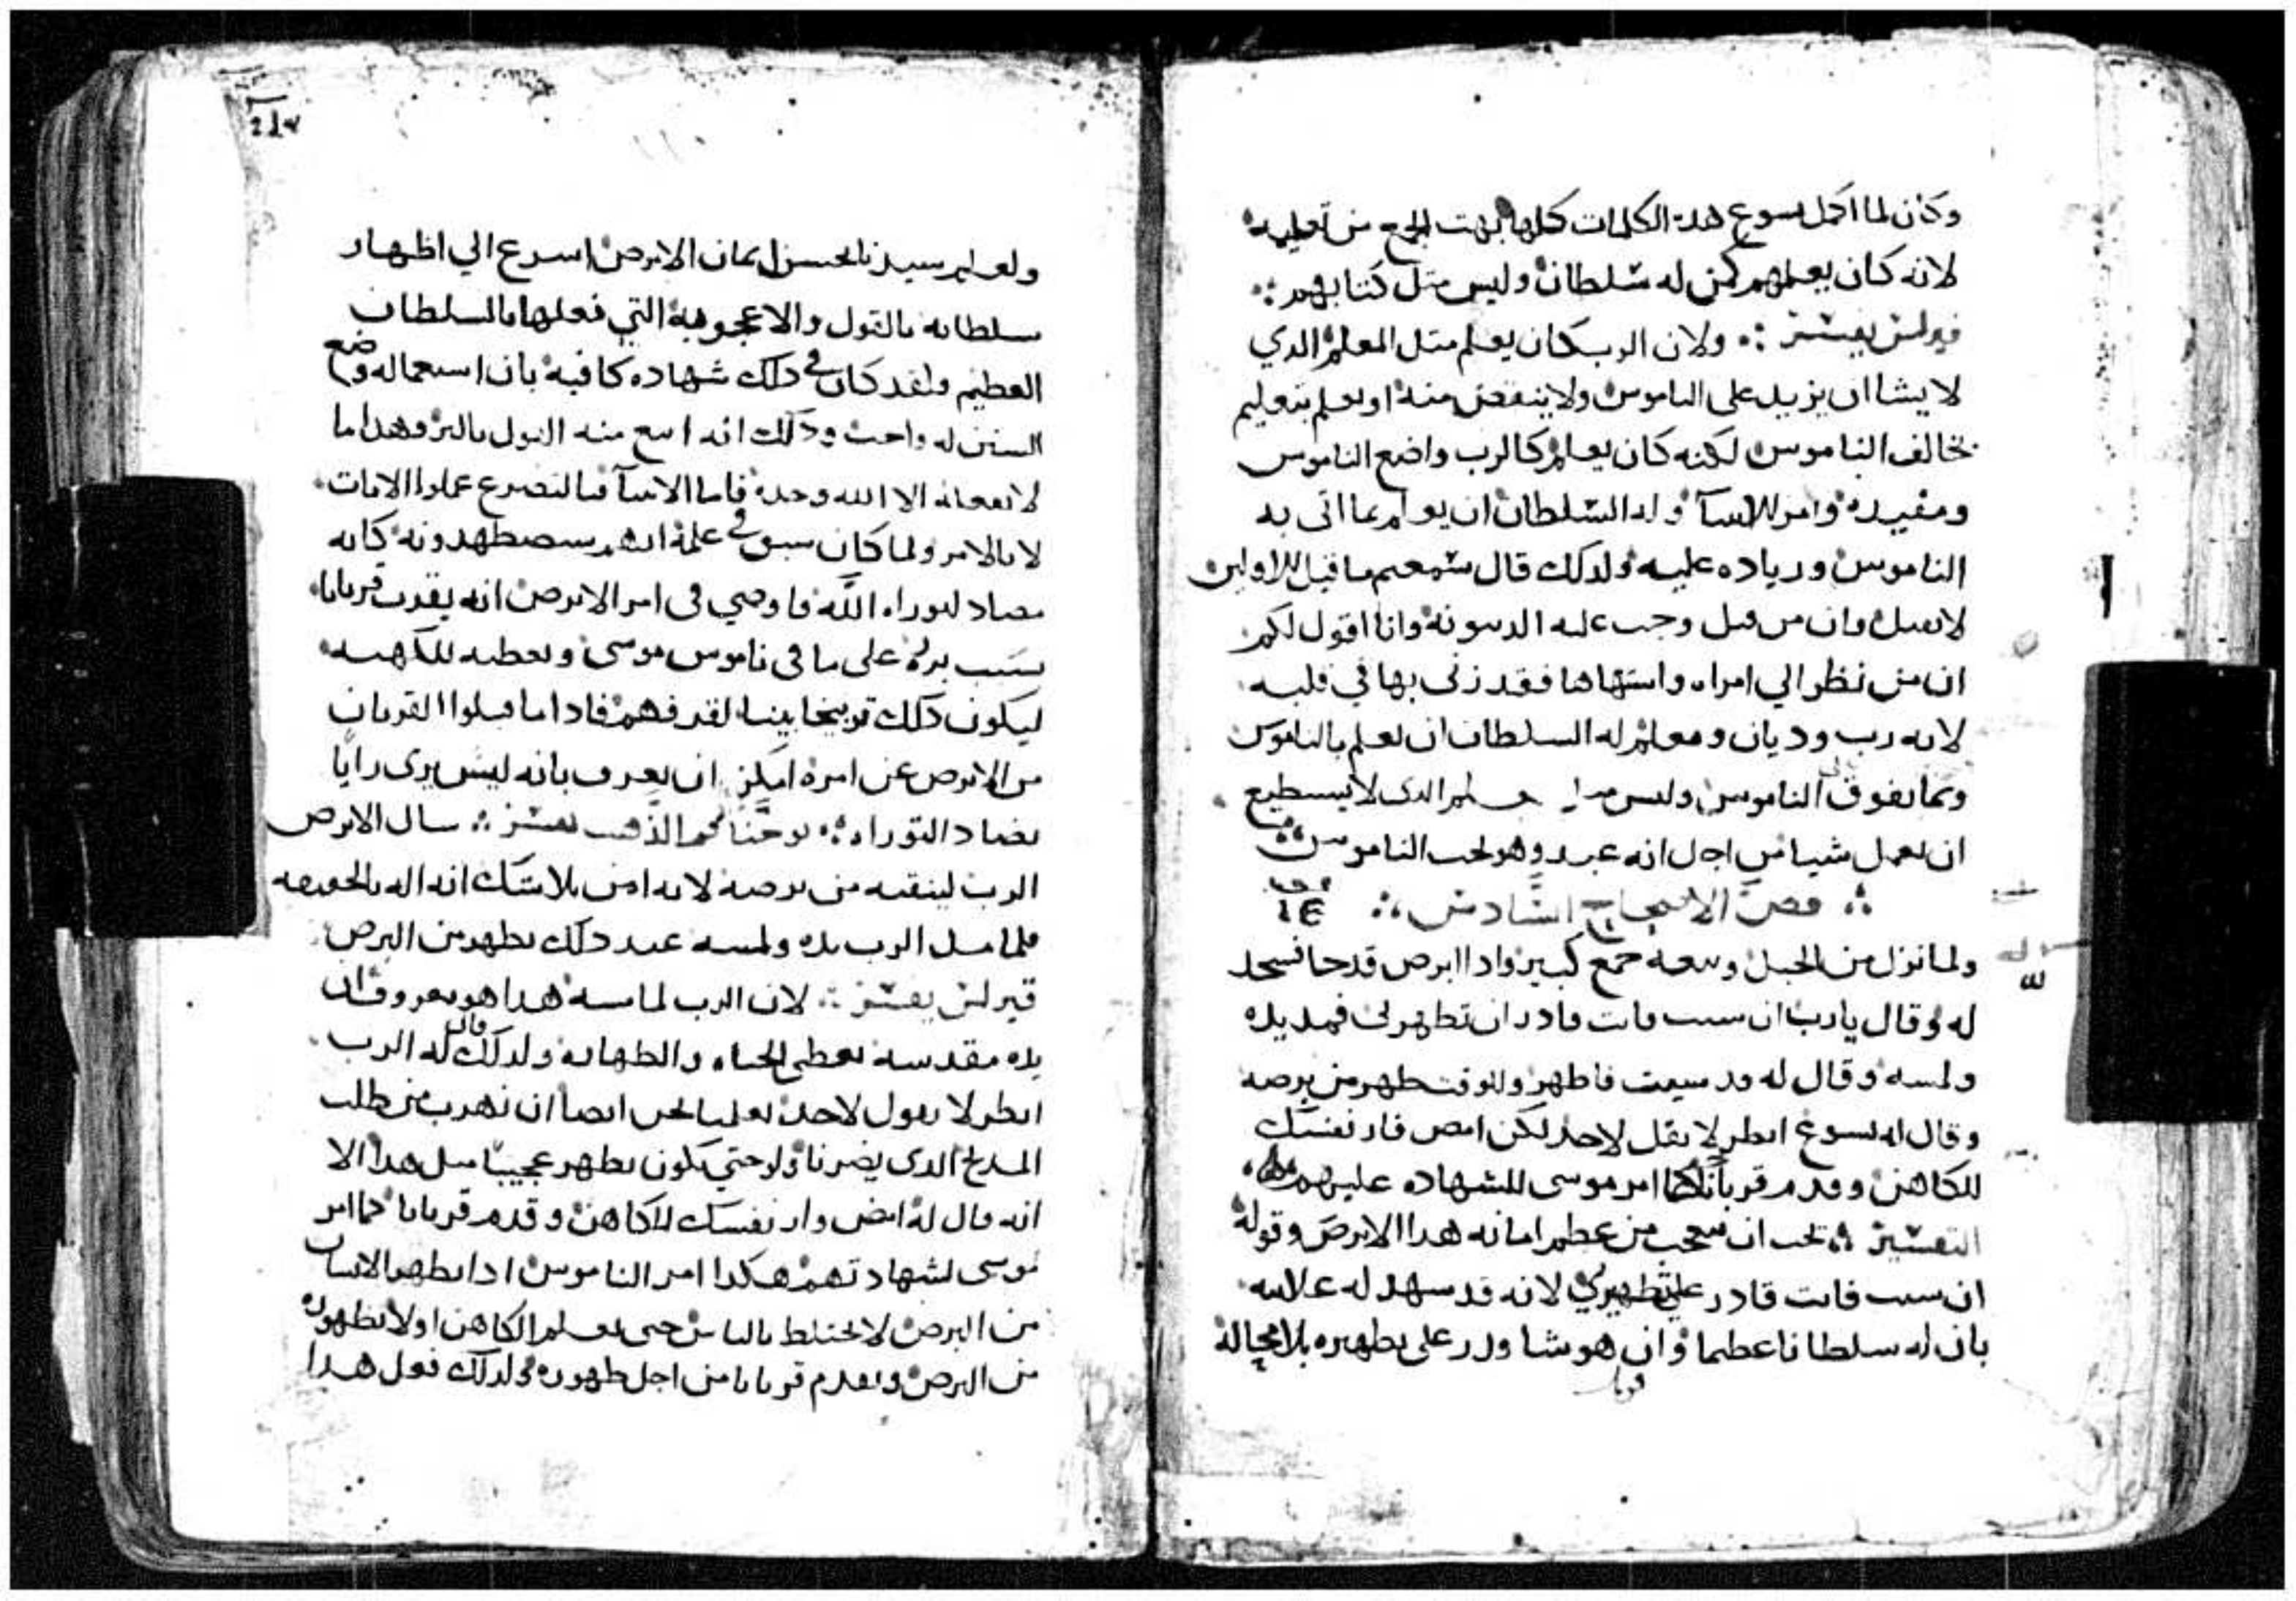 وكان لما اكمل يسوع هده الكلمات كلها بهت الجمع من تعليمه
لانه كان يعلمهم كمن له سلطان وليس متل كتابهم
قيرلس يفسر ولان الرب كان يعلم متل المعلم الدي
لا يشا ان يزيد على الناموس ولا ينقص منه او يعلم بتعليم
يخالف الناموس لكنه كان يعلم كالرب واضع الناموس
ومفيده وامر للانبيا وله السلطان ان يعلم بما اتى به
الناموس وزياده عليه ولدلك قال سمعتم ما قيل للاولين
لا تقتل وان من قتل وجب عليه الدينونه وانا اقول لكم
ان من نظر الي امراه واشتهاها فقد زنى بها في قلبه
لانه رب وديان ومعلم له السلطان ان يعلم بالناموس
وبما يفوق الناموس وليس الدى لا يستطيع
ان يعمل شيا من اجل انه عبد وهو تحت الناموس
فص الاصحاح السادس
ولما نزل من الجبل وتبعه جمع كبير وادا ابرص قد جا فسجد
له وقال يا رب ان شيت فانت قادر ان تطهرني فمد يده
ولمسه وقال له قد شيت فاطهر وللوقت طهر من برصه
وقال له يسوع انظر لا تقل لاحد لكن امض فار نفسك
للكاهن وقدم قربانك كما امر موسى للشهاده عليهم
التفسير يجب ان نتعجب من عظم امانه هدا الابرص وقوله
ان شيت فانت قادر على تطهيري لانه قد شهد له علانيه
بان له سلطانا عظيما وان هو شا قدر على تطهيره بلا محاله
217
ولعلم سيدنا لحسن ايمان الابرص اسرع الي اظهار
سلطانه بالقول والاعجوبه التي فعلها بالسلطان
العظيم ولقد كان في دلك شهاده كافيه بان استعماله وضع
السنن له واجب ودلك انه اتبع منه القول بالبر وهدا ما
لا يفعله الا الله وحده فاما الانبيا فبالتضرع عملوا الايات
لا بالامر ولما كان سبق في علمه انهم سيضطهدونه كانه
مضاد لتوراه الله فاوصي في امر الابرص انه يقدم قربانا
بسبب بره على ما في ناموس موسى ويعطيه للكهنه
ليكون دلك توبيخا بينا لقد فهم فادا ما قبلوا القربان
من الابرص عن امره امكن ان يعرف بانه ليس يرى رايا
يضاد التوراه يوحنا فم الذهب يفسر سال الابرص
الرب لينقيه من برصه لانه امن بلا شك انه اله بالحقيقه
فلما مد الرب يده ولمسه عند دلك تطهر من البرص
قيرلس يفسر لان الرب لما مسه هدا هو معروف ان
يده مقدسه تعطي الحياه والطهاره ولدلك قال له الرب
انظر لا تقول لاحد يعلمنا نحن ايضا ان نهرب من طلب
المديح الدى يضرنا ولو حتي يكون يظهر عجيبا متل هدا الا
انه قال له امض وار نفسك للكاهن وقدم قربانا كما امر
موسى لشهادتهم هكدا امر الناموس ادا تطهر الانسان
من البرص لا يختلط بالناس حتى يعلم الكاهن اولا بطهوره
من البرص ويقدم قربانا من اجل طهوره ولدلك فعل هدا